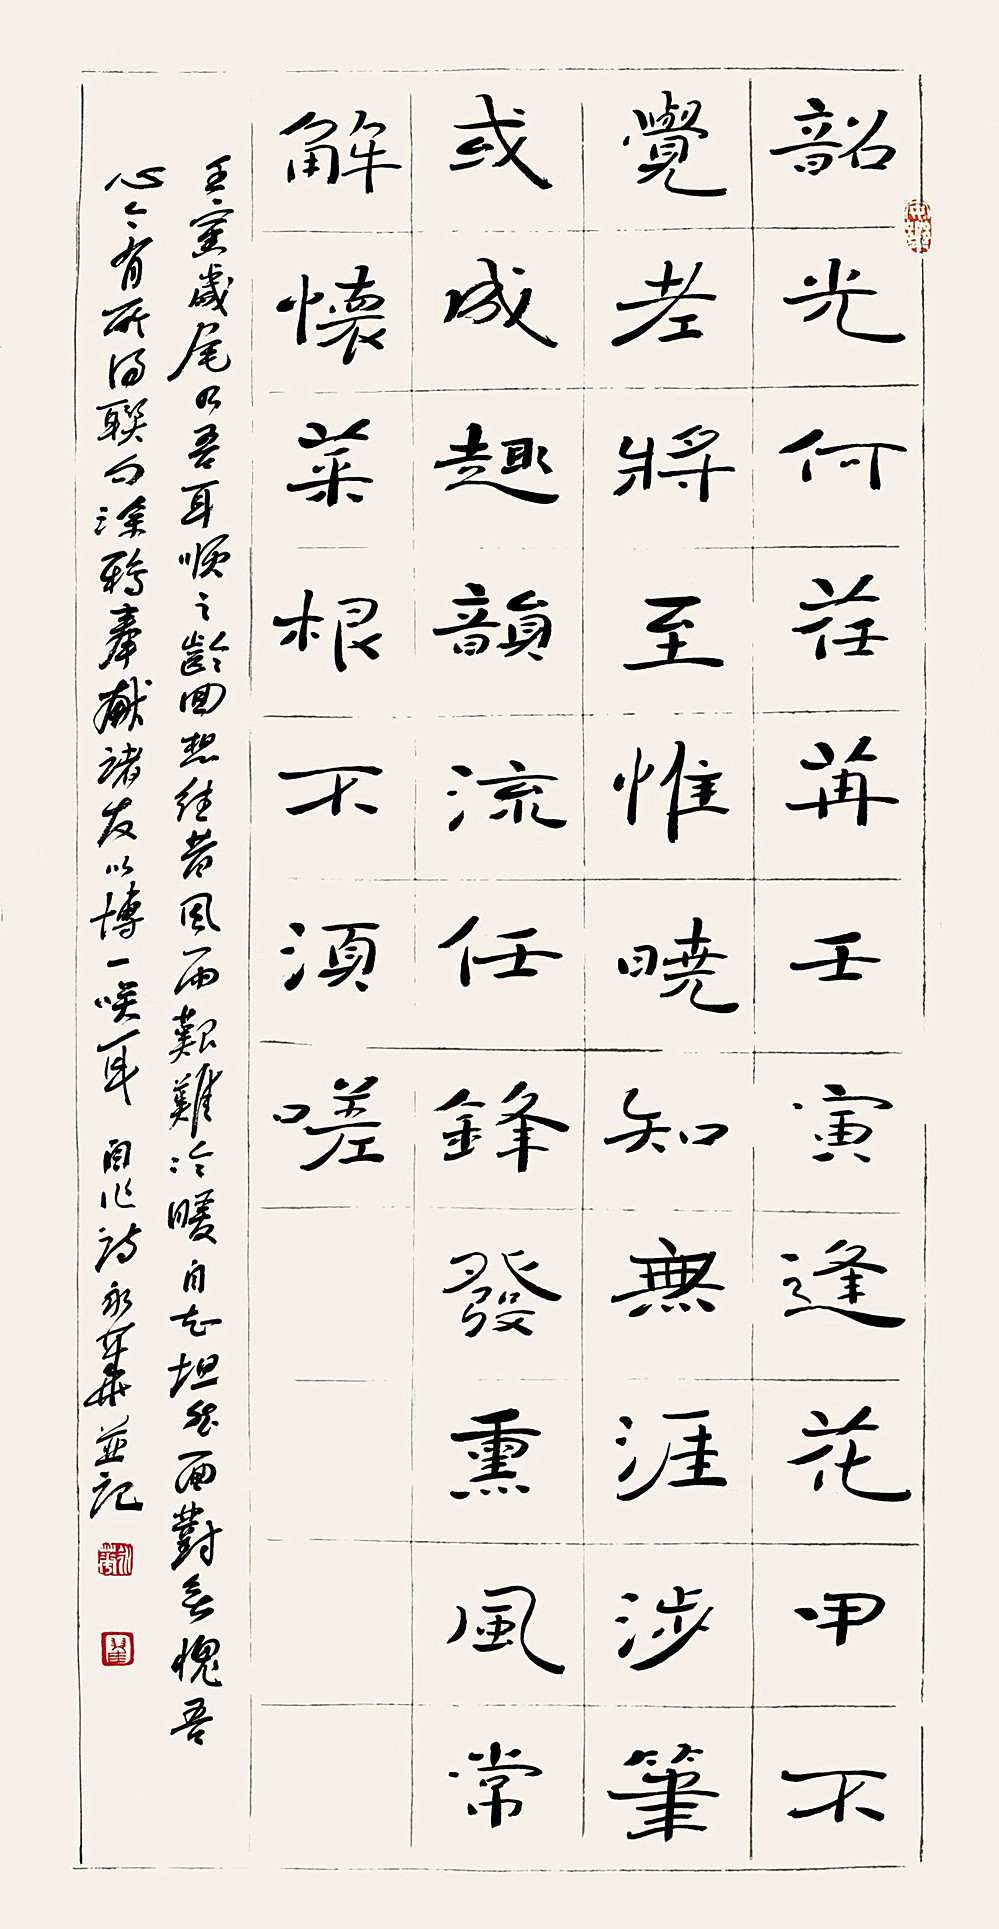 韶光何荏苒壬寅逢花甲不
覺老將至惟曉知無涯涉筆
或成趣韻流任鋒發熏風常
解懷菜根不須嗟
壬寅歲尾乃吾耳順之齡回想往昔風雨艱難冷暖自知坦然面對無愧吾
心今有所得聯句塗鴉奉獻諸友以博一咲耳 自作詩永華並記